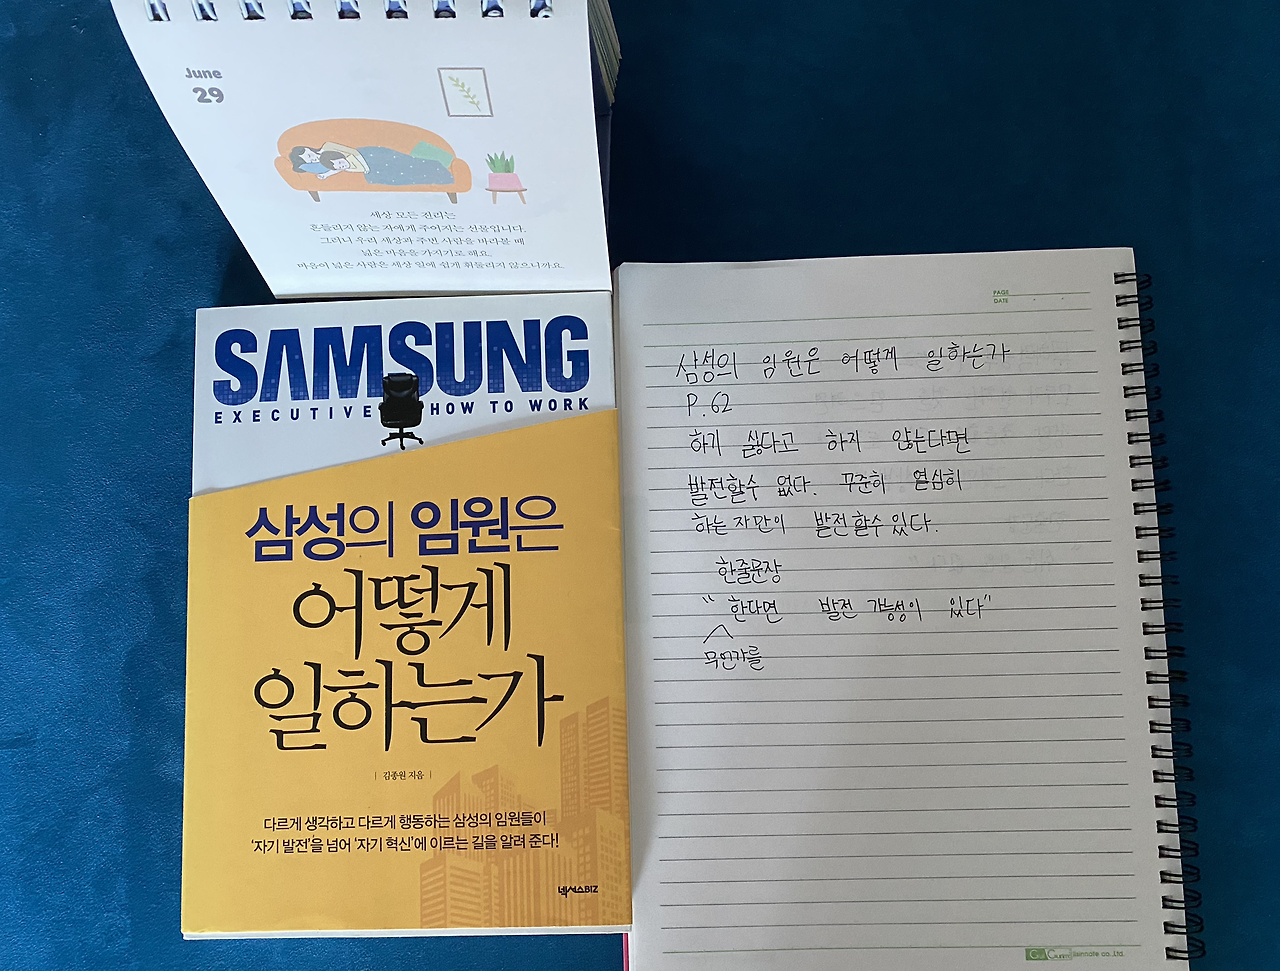 June
29
세상 모든 진리는
흔들리지 않는 자에게 주어지는 선물입니다.
그러니 우리 세상과 주변 사람을 바라볼 때
넓은 마음을 가지기로 해요.
마음이 넓은 사람은 세상 일에 쉽게 휘둘리지 않으니까요.
SAMSUNG
EXECUTIVE HOW TO WORK
삼성의 임원은
어떻게
일하는가
| 김종원 지음 |
다르게 생각하고 다르게 행동하는 삼성의 임원들이
'자기 발전'을 넘어 '자기 혁신'에 이르는 길을 알려 준다!
넥서스BIZ
PAGE
DATE
삼성의 임원은 어떻게 일하는가
P.62
하기 싫다고 하지 않는다면
발전할수 없다. 꾸준히 열심히
하는 자만이 발전할수있다.
한줄문장
" 한다면 발전 가능성이 있다"
무언가를
Co.,Ltd.